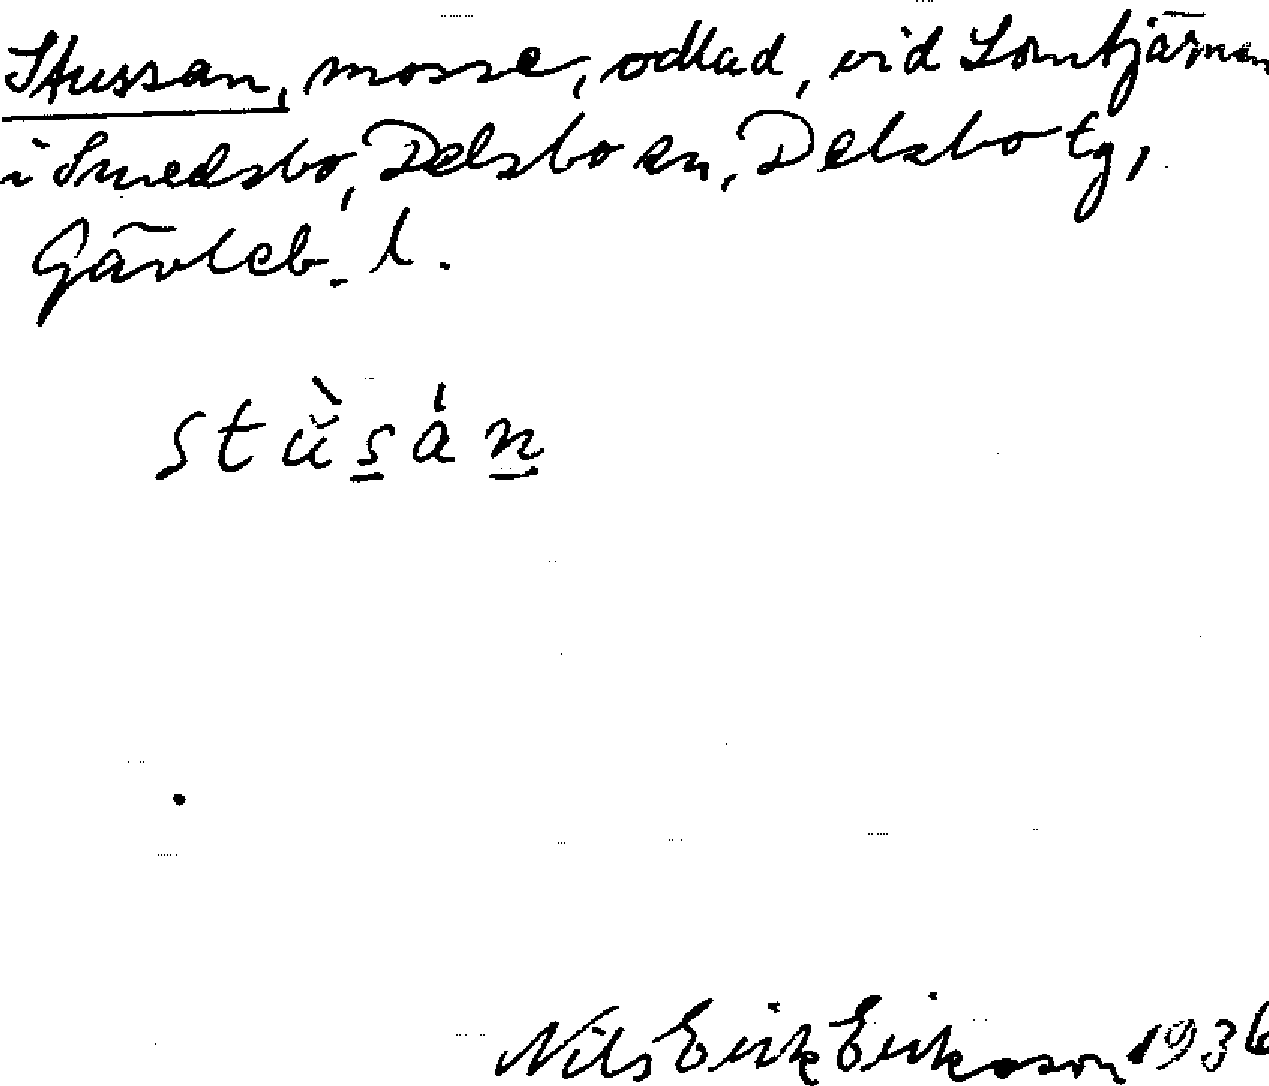 Stussan, mosse, odlad, vid Lomtjärnen
i Smedsbo, Delsbo sn, Delsbo tg,
Gävleb. l.
stŭ̀s̲án̲
Nils Erik Eriksson 1936